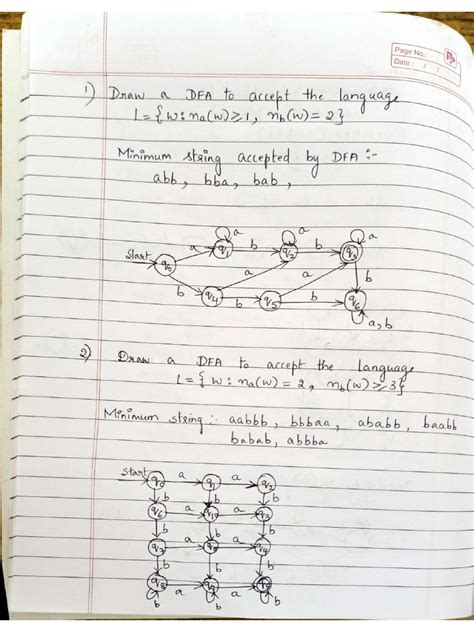 Page No.:
Date: / /
1) Draw a DFA to accept the language
L = { w : na(w) ≥ 1, nb(w) = 2 }
Minimum string accepted by DFA :-
abb, bba, bab,
a a a
Start q0 a q1 b q2 b q3
a a b
b q4 b q5 b q6
a, b
2) Draw a DFA to accept the language
L = { w : na(w) = 2, nb(w) ≥ 3 }
Minimum string : aabbb, bbbaa, ababb, baabb
babab, abbba
Start q0 a q1 a q2
b b b
q6 a a q3
b b b
a a q4
b b b
q8 a a
b b b